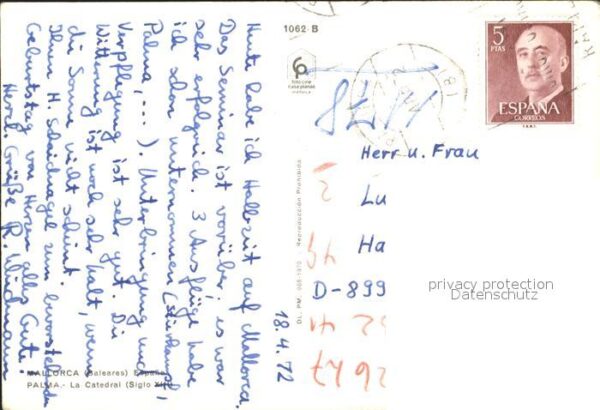 Heute habe ich Halbzeit auf Mallorca.
Das Seminar ist vorüber, es war
sehr erfolgreich. 3 Ausflüge habe
ich schon unternommen (
Palma, ...). Unterbringung und
Verpflegung ist sehr gut. Die
Witterung ist noch sehr kalt, wenn
die Sonne nicht scheint.
Ihnen H. zum bevorstehenden
Geburtstag von Herzen alles Gute!
Herzl. Grüße R.
18.4.72
MALLORCA (Baleares) España
PALMA.- La Catedral (Siglo
1062-B
DL. PM.
Reproducción Prohibida
5
PTAS
ESPAÑA
CORREOS
Herr u. Frau
Lu
Ha
D-899
privacy protection
Datenschutz